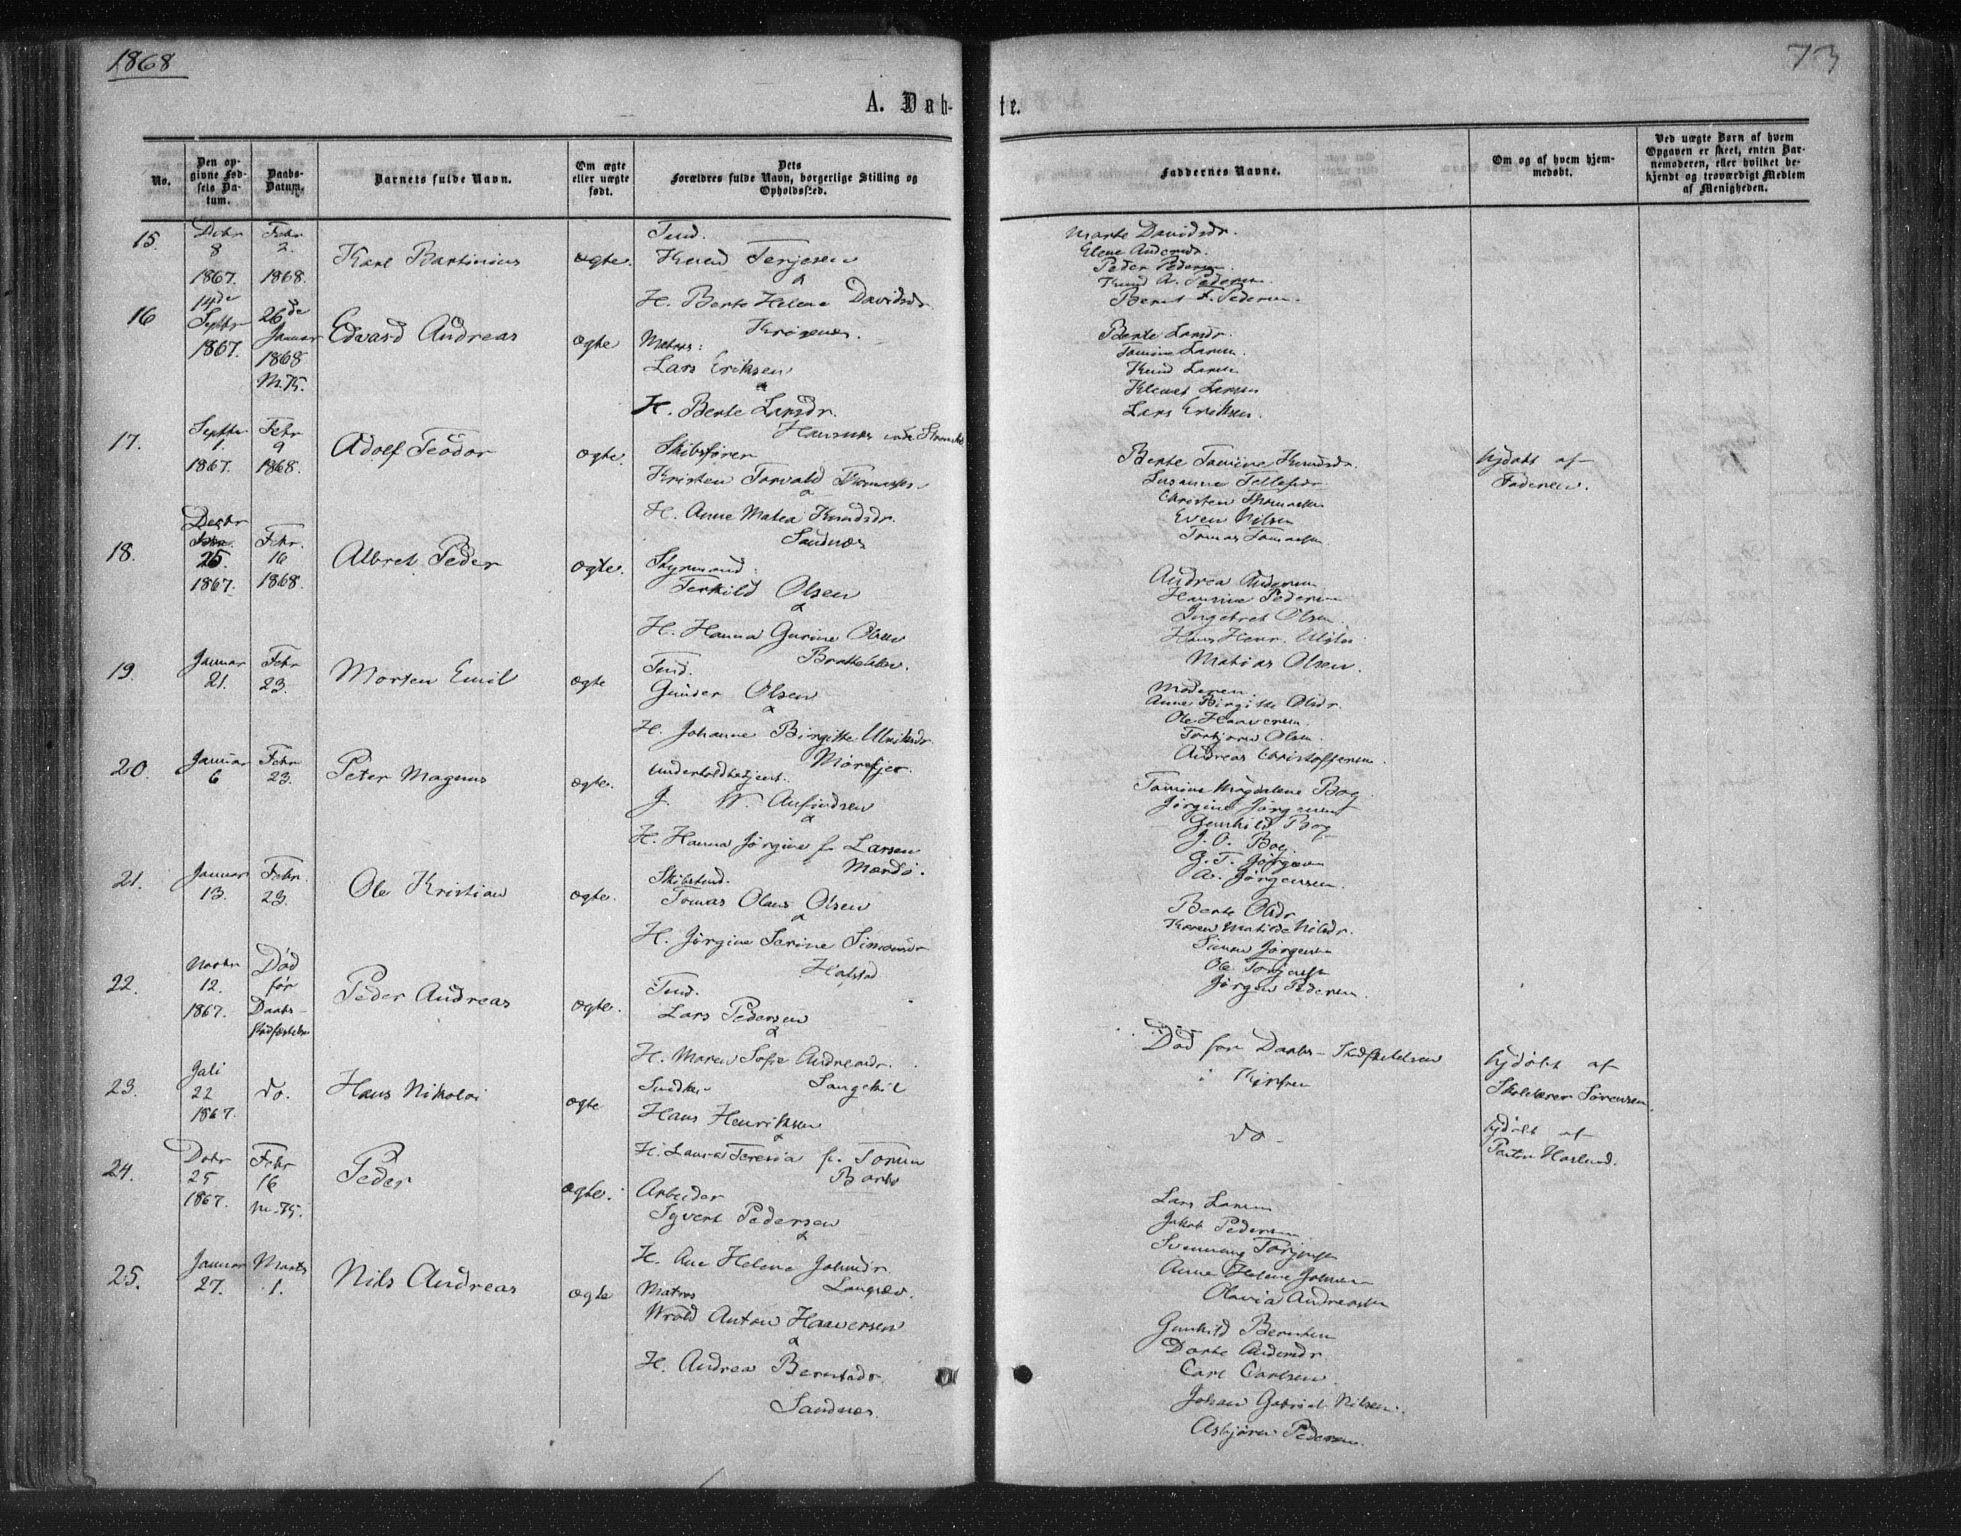 1868
73
A. Døb-
te.
No.
Den op-
givne Fød-
sels Da-
tum.
Daabs-
Datum.
Barnets fulde Navn.
Om ægte
eller uægte
født.
Dets
Forældres fulde Navn, borgerlige Stilling og
Opholdssted.
Faddernes Navne.
Om og af hvem hjem-
medøbt.
Ved uægte Barn af hvem
Opgaven er skeet, enten Bar-
nemoderen, eller hvilket be-
kjendt og troværdigt Medlem
af Menigheden.
15.
Debr
8
1867.
Febr
2.
1868.
Karl Bartinius
ægte.
Knud Terjesen
&
H. Berte Helene Davidsdr.
Marte Davidsdr.
Elene Andersdr.
Peder Pedersen.
Knud A. Pedersen
Bernt Pedersen.
16
14de
Septbr
1867.
26de
Januar
1868
M.K.
Edvard Andreas
ægte
Matros:
Lars Eriksen
&
H. Berte Larsdr.
Berte Larsdr.
Tomine Larsen.
Knud Larsen
Klemet Larsen
Lars Eriksen.
17.
Septbr
1.
1867.
Febr
9
1868.
Adolf Teodor
ægte.
Skibsfører
Kristen Torvald Thomassen
&
H. Anne Matea Knudsdr.
Sandnæs
Berte Tomine Knudsdr.
Susanne Tellefsdr
Christen Thomassen
Even Nilsen
Tomas Tomassen
hjdøbt af
Faderen.
18.
Desbr
25.
1867.
Febr.
16
1868.
Albret Peder
ægte.
Styrmand:
Terkild Olsen
&
H. Hanna Gurine Olsen
Andrea Andersen
Hansine Pedersen
Ingebret Olsen
Matias Olsen.
19.
Januar
21.
Febr
23.
Morten Emil
ægte
Gunder Olsen
&
H. Johanne Birgitte Ulriksdr.
Mørefjer.
Moderen.
Anne Birgitte Olsdr.
Ole Haaversen.
Torbjørn Olsen.
Andreas Christoffersen.
20.
Januar
6
Febr
23.
Peter Magnus
ægte.
J. W. Anfindsen
&
H. Hanna Jørgine f. Larsen
Mærdø.
Tomine Magdalene Bog.
Jørgine Jørgensen
Gunhild Bog
J. O. Bog.
G. T. Jørgensen
A. Jørgensen.
21.
Januar
13.
Febr.
23.
Ole Kristian
ægte.
Tomas Olaus Olsen
&
H. Jørgine Serine Simonsdr
Berte Olsdr
Karen Matilde Nilsdr.
Simon Jørgensen
Ole Torjensen
Jørgen Pedersen.
22.
Novbr
12.
1867.
Død
før
Daabs-
stadfæstelse
Peder Andreas
ægte.
Lars Pedersen
&
H. Maren Sofie Andreasdr.
Død før Daabs-Stadfæstelsen
i Kirken
hjdøbt af
Skolelærer Sørensen.
23.
Juli
22
1867.
do.
Hans Nikolai
ægte
Hans Henriksen
&
H. Laura Teresia f. Tomm
do -
hjdøbt af
Pastor Haslund.
24.
Debr
25
1867.
Febr
16
M.K.
Peder
ægte.
Arbeider
Syvert Pedersen
&
H. Ane Helene Johnsdr.
Langsæv.
Lars Larsen
Jakob Pedersen
Svennung Torjensen
Anne Helene Johnsen
Olavia Andreassen
25.
Januar
27.
Marts
1.
Nils Andreas
ægte
Matros
Wrold Anton Haaversen
&
H. Andrea Berntsdr.
Sandnæs.
Gunhild Berntsen
Dorte Andersdr.
Carl Carlsen
Johan Gabriel Nilsen.
Asbjørn Pedersen.